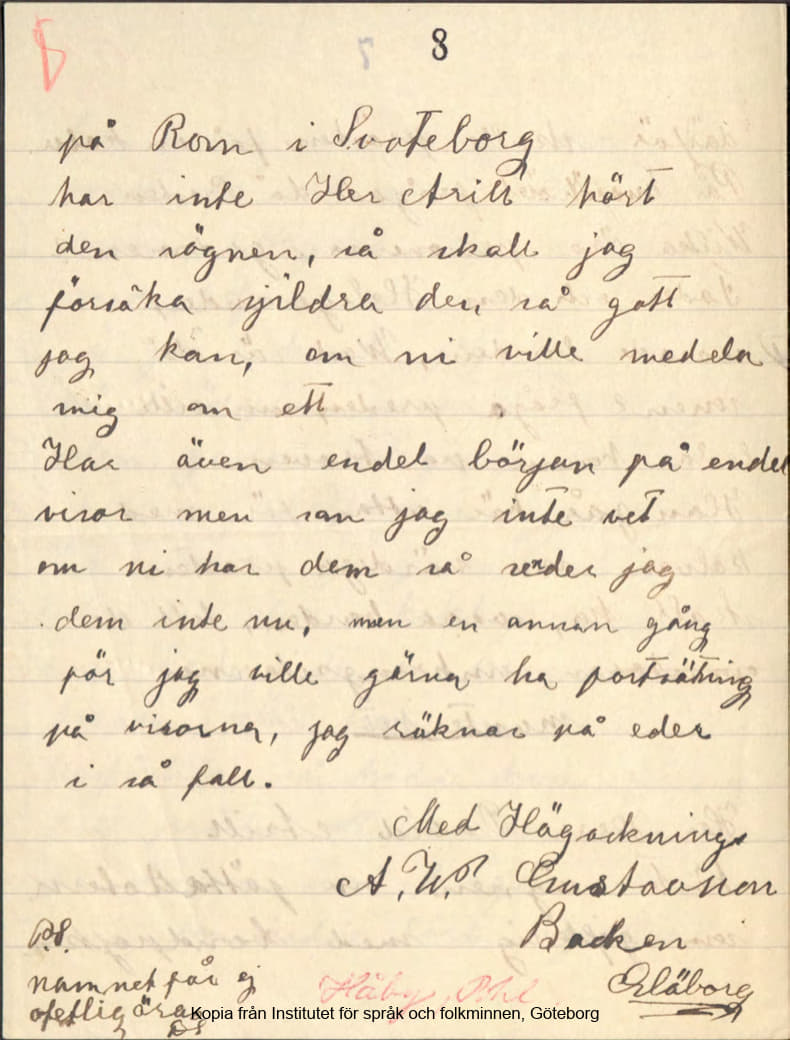 8
på Rom i Svateborg
har inte Her Arill hört
den sägnen, så skall jag
försöka sjildra den så gott
jag kan, om ni ville medela
mig om ett
Har även endel början på endel
visor men som jag inte vet
om ni har dem så sender jag
dem inte nu, men en annan gång
för jag ville gärna ha fortsätning
på visorna, jag räknar på eder
i så fall.
Med Högacknings
A. W. Gustavsson
Backen
P.S.
namnet får ej
Häby, Bhl
ofetlig öras
DS
Kopia från Institutet för språk och folkminnen, Göteborg